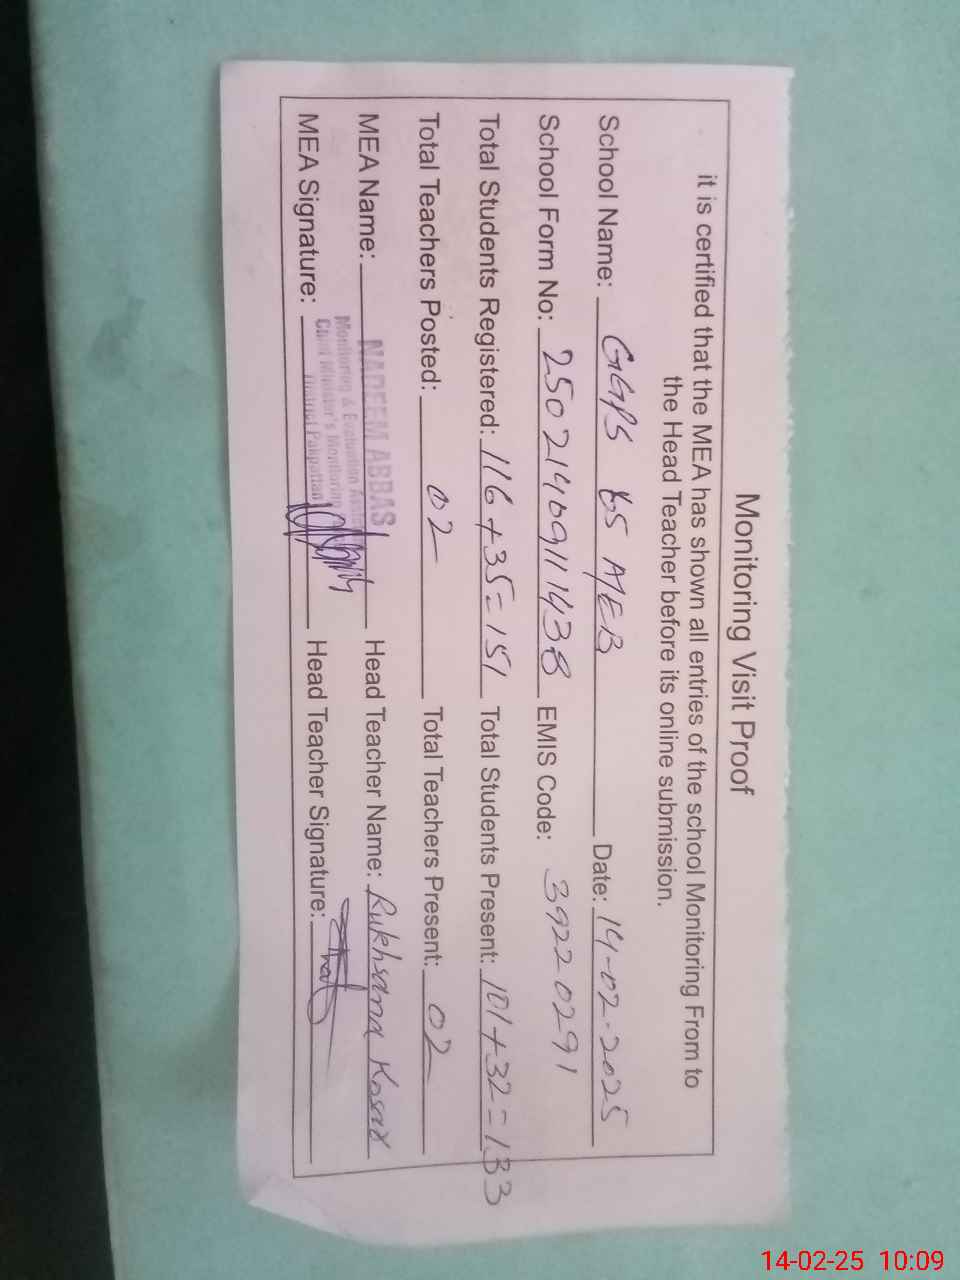 Monitoring Visit Proof
it is certified that the MEA has shown all entries of the school Monitoring From to
the Head Teacher before its online submission.
School Name: GGPS 65 A/EB Date: 14-02-2025
School Form No: 25021409111438 EMIS Code: 39220291
Total Students Registered: 116+35=151 Total Students Present: 101+32=133
Total Teachers Posted: 02 Total Teachers Present: 02
MEA Name: NADEEM ABBAS Head Teacher Name: Rukhsana Kosar
Monitoring & Evaluation
Chief Minister's Monitoring
District Pakpattan
MEA Signature: Head Teacher Signature:
14-02-25 10:09